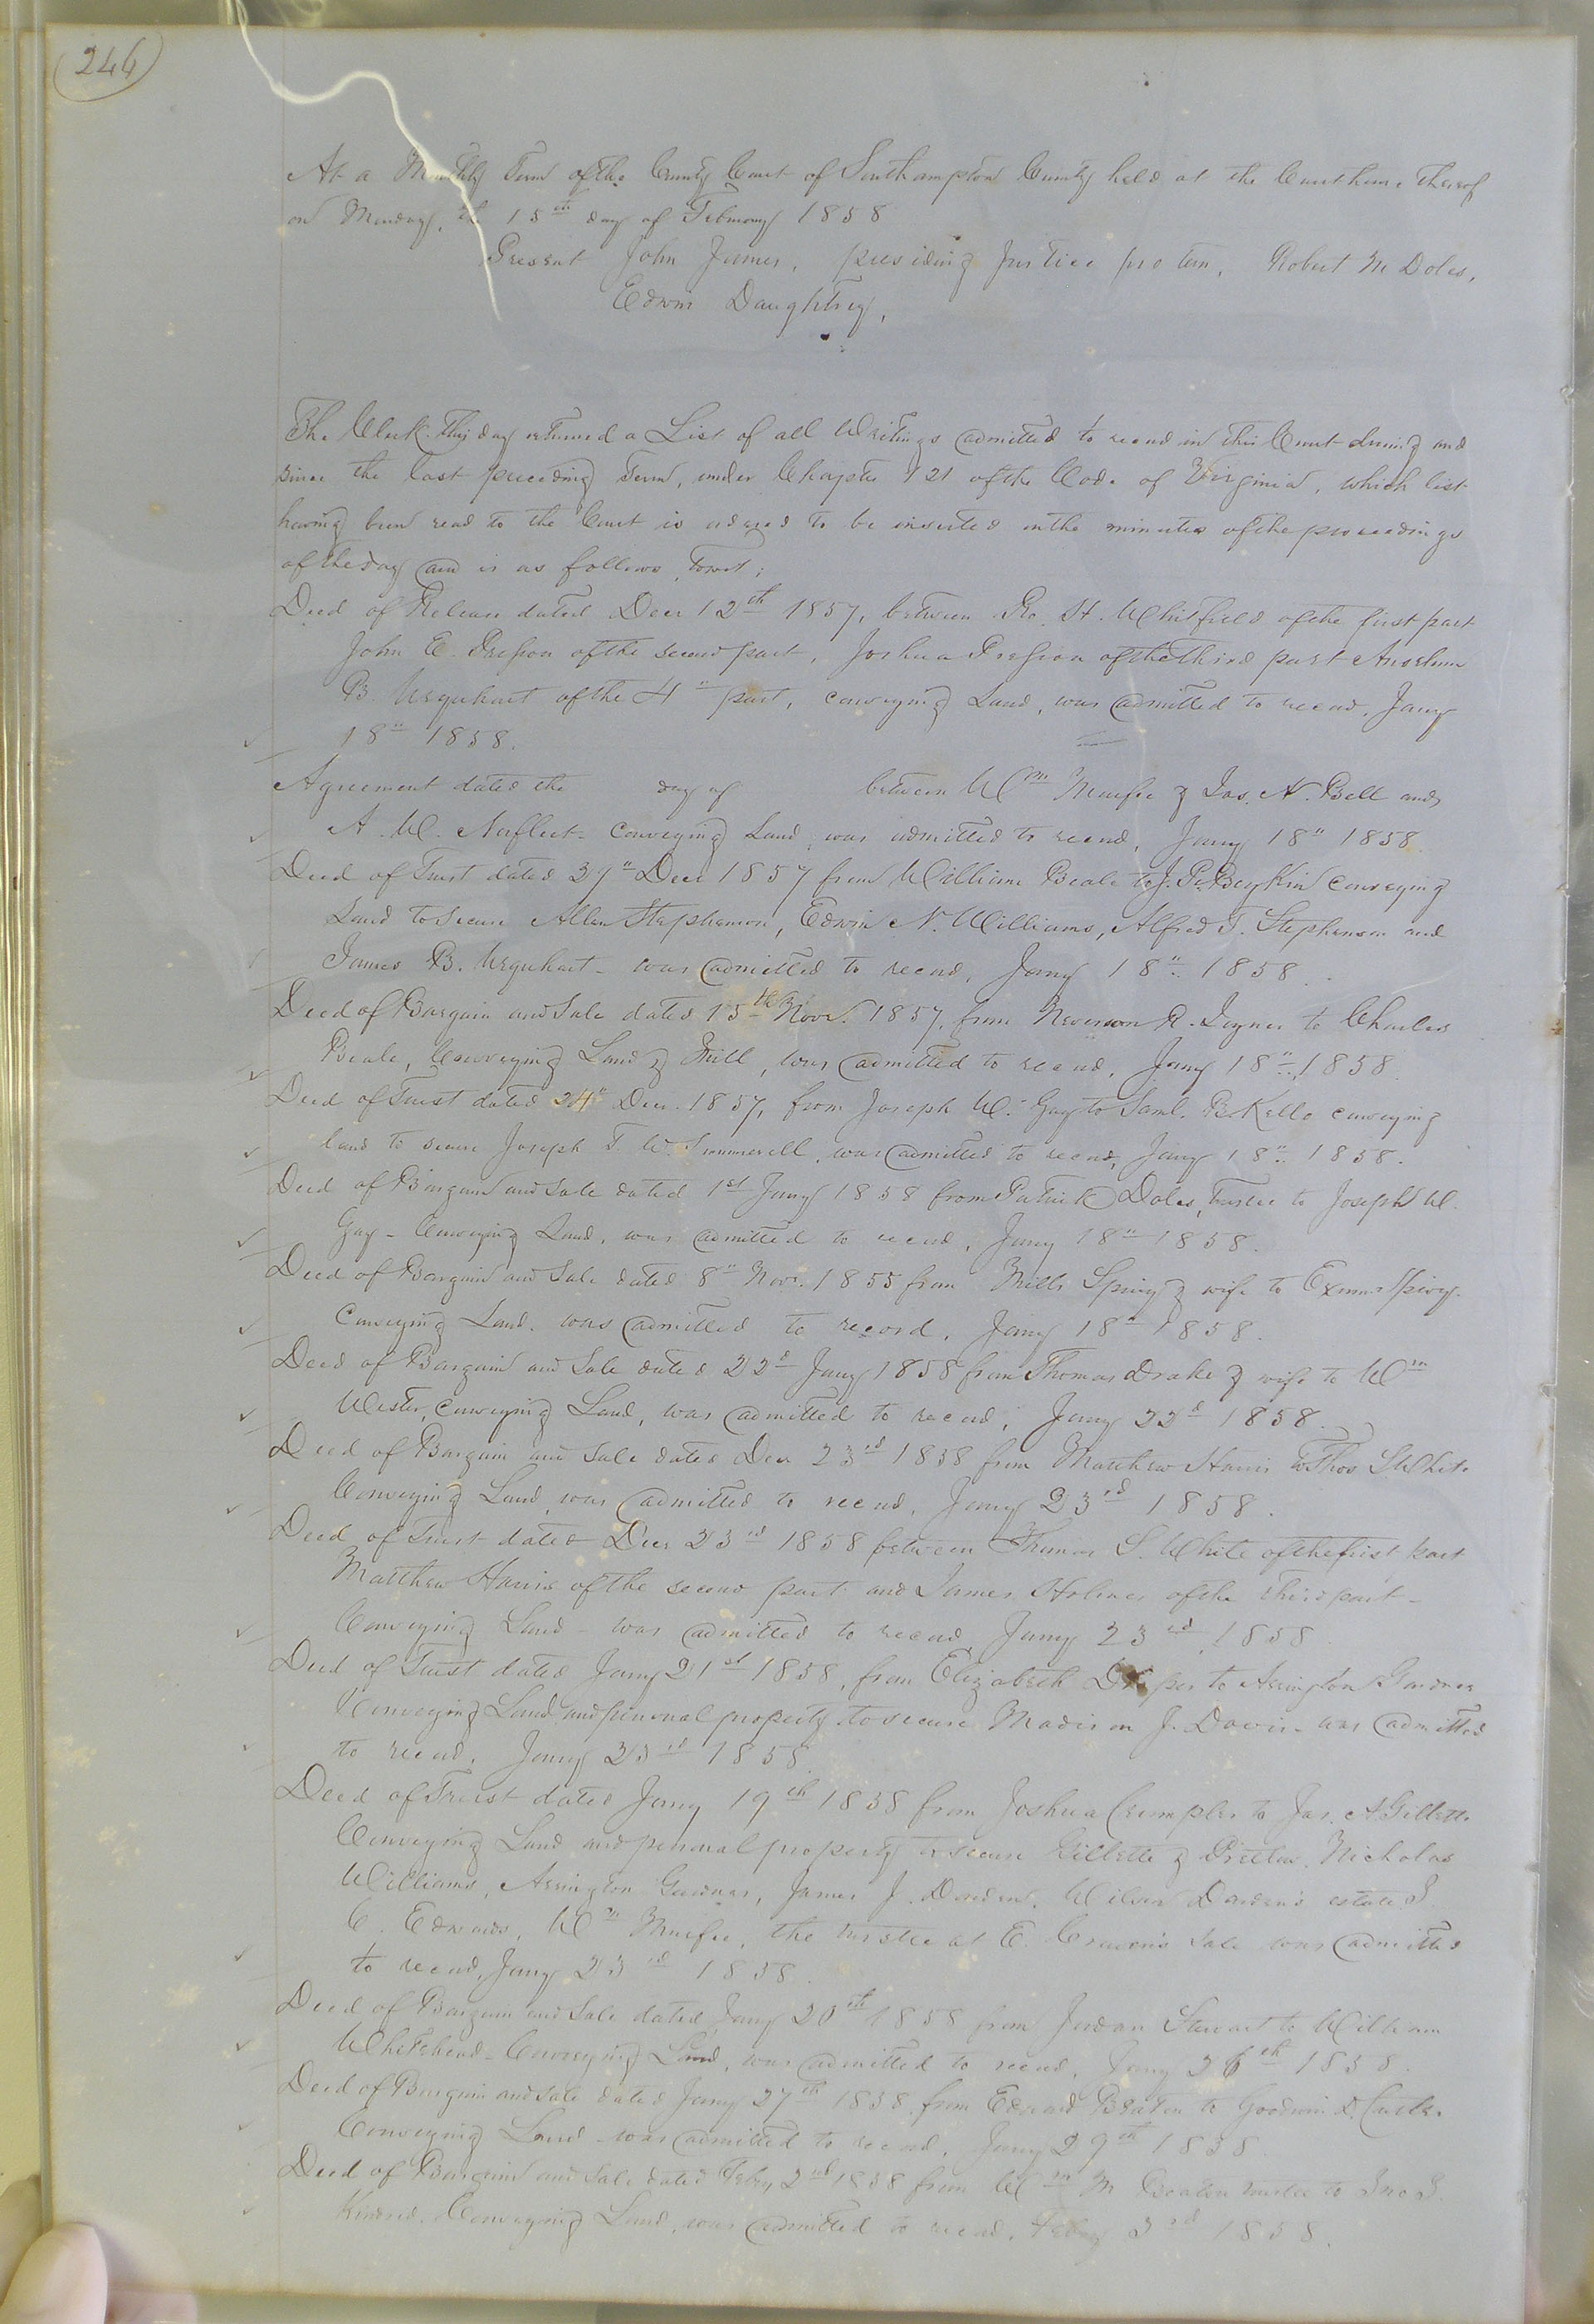 246
At a Monthly Term of the County Court of Southampton County held at the Courthouse thereof
on Monday, the 15th day of February 1858
Present John James, presiding Justice pro tem, Robert M Doles,
Edwin Daughtrey,
The Clerk this day returned a List of all Writings admitted to record in this Court during and
since the last preceding Term, under Chapter 121 of the Code of Virginia, which list
having been read to the Court is ordered to be inserted in the minutes of the proceedings
of the day and is as follows, towit;
Deed of Release dated Decr 12th 1857, between Ro. H. Whitfield of the first part
John E. Presson of the second part, Joshua Presson of the third part Anselm
B. Urquhart of the 4" part, conveying Land, was admitted to record, Jany
18" 1858.
Agreement dated the day of between Wm Murfee & Jas. N. Bell and
A. W. Norfleet- Conveying Land, was admitted to record, Jany 18" 1858.
Deed of Trust dated 37" Decr 1857 from William Beale to J. P. Boykin Conveying
Land to Secure Allen Stephenson, Edwin N. Williams, Alfred T. Stephenson and
James B. Urquhart - was admitted to record, Jany 18" 1858.
Deed of Bargain and Sale dated 15th Novr. 1857, from Neverson R. Joyner to Charles
Beale, Conveying Land & Mill, was admitted to record, Jany 18" 1858.
Deed of Trust dated 24" Decr. 1857, from Joseph W. Gay to Saml. B Kello conveying
land to secure Joseph T. W. Summerell, was admitted to record, Jany 18" 1858.
Deed of Bargain and Sale dated 1st Jany 1858 from Patrick Doles, Trustee to Joseph W.
Gay - Conveying Land, was admitted to record, Jany 18" 1858.
Deed of Bargain and Sale dated 8" Novr. 1855 from Mills Spivy & wife to Exum Spivy-
Conveying Land. was admitted to record, Jany 18" 1858.
Deed of Bargain and Sale dated 22d Jany 1858 from Thomas Drake & wife to Wm
Wester, Conveying Land, was admitted to record, Jany 22d 1858.
Deed of Bargain and Sale dated Decr 23rd 1858 from Matthew Harris to Thos S White
Conveying Land, was admitted to record, Jany 23rd 1858.
Deed of Trust dated Decr 23rd 1858 between Thomas S. White of the first part
Matthew Harris of the second part and James Holmes of the third part -
Conveying Land - was admitted to record, Jany 23rd 1858
Deed of Trust dated Jany 21st 1858, from Elizabeth Draper to Arrington Gardner
Conveying Land and personal property to secure Madison J. Davis - was admitted
to record. Jany 23rd 1858
Deed of Trust dated Jany 19th 1858 from Joshua Crumpler to Jas. A Gillette
Conveying Land and personal property to secure Gillette & Pretlow, Nicholas
Williams, Arrington Gardner, James J. Darden, Darden's estate J.
C. Edwards, Wm Murfee, the trustee at E. sale was admitted
to record, Jany 23rd 1858.
Deed of Bargain and Sale dated Jany 20th 1858 from Jordan Stewart to William
Whitehead - Conveying Land, was admitted to record, Jany 26th 1858.
Deed of Bargain and Sale dated Jany 27th 1858 from Edward Beaton to Goodwin D.
Conveying Land was admitted to record, Jany 29th 1858.
Deed of Bargain and Sale dated Feby 2nd 1858 from Wm M Beaton trustee to Jno J.
Kindred. Conveying Land, was admitted to record. Feby 3rd 1858.